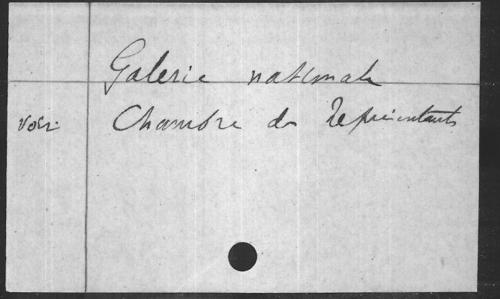 Galerie nationale
voir Chambre des Représentants